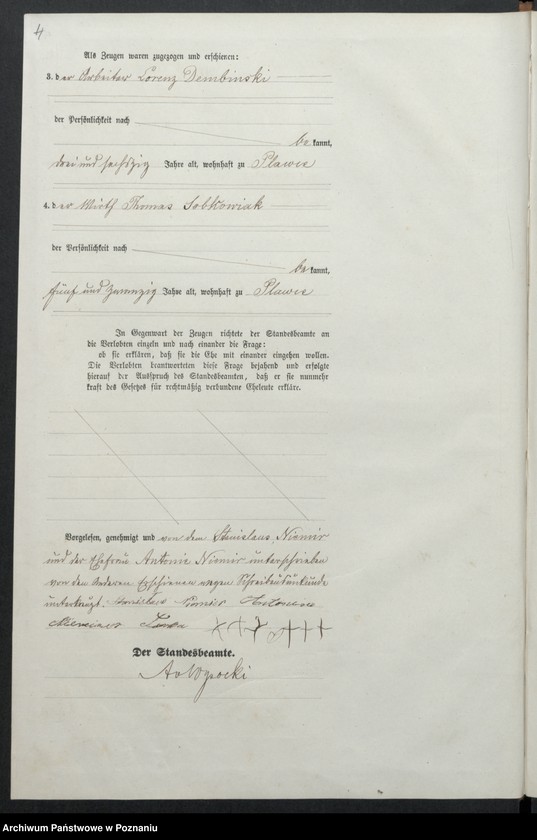 4
Als Zeugen waren zugezogen und erschienen:
3. der Arbeiter Lorenz Dembinski
der Persönlichkeit nach
bekannt,
drei und sechszig Jahre alt, wohnhaft zu Plawce
4. der Wirth Thomas Sobkowiak
der Persönlichkeit nach
bekannt,
fünf und zwanzig Jahre alt, wohnhaft zu Plawce
In Gegenwart der Zeugen richtete der Standesbeamte an
die Verlobten einzeln und nach einander die Frage:
ob sie erklären, daß sie die Ehe mit einander eingehen wollen.
Die Verlobten beantworteten diese Frage bejahend und erfolgte
hierauf der Ausspruch des Standesbeamten, daß er sie nunmehr
kraft des Gesetzes für rechtmäßig verbundene Eheleute erkläre.
Vorgelesen, genehmigt und von dem Stanislaus Niemir
und der Ehefrau Antonie Niemir unterschrieben
von den Anderen Erschienen wegen Schreibensunkunde
unterkreuzt. Stanislaw Niemir Antonina
+++ +++
Der Standesbeamte.
AvWysocki
Archiwum Państwowe w Poznaniu